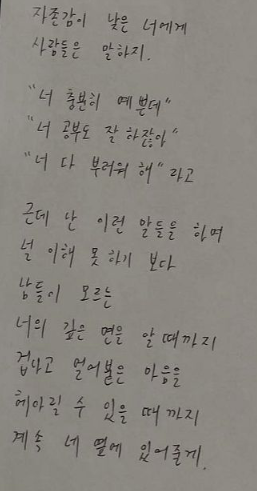 자존감이 낮은 너에게
사람들은 말하지.
"너 충분히 예쁜데"
"너 공부도 잘 하잖아"
"너 다 부러워 해" 라고
근데 난 이런 말들을 하며
널 이해 못 하기 보다
남들이 모르는
너의 깊은 면을 알 때까지
겁나고 얼어붙은 마음을
헤아릴 수 있을 때 까지
계속 네 옆에 있어줄게.